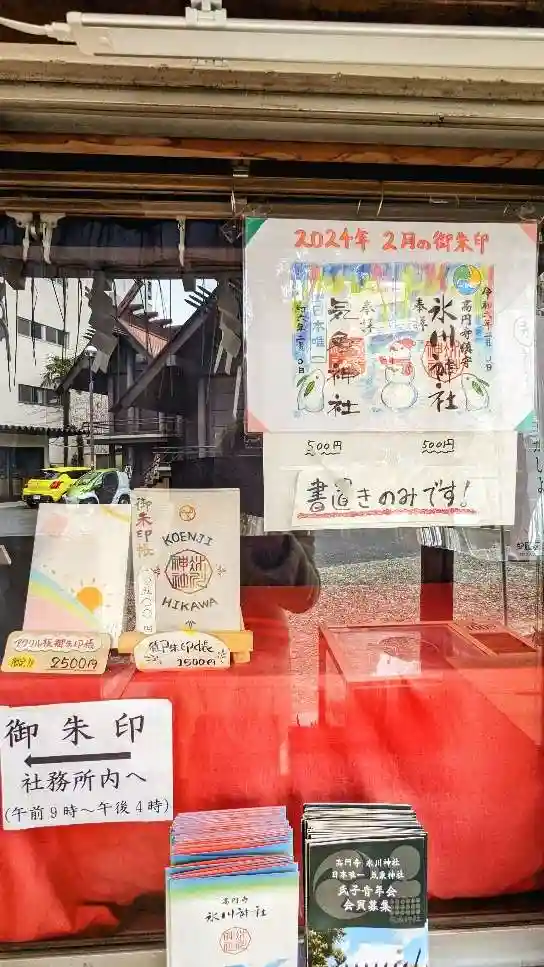 2024年 2月の御朱印
令和六年二月〇日
高円寺鎮守
奉拝
氷川神社
奉拝
気象神社
日本唯一
令和六年二月〇日
500円
500円
書置きのみです!
御朱印
KOENJI
HIKAWA
アクリル板御朱印帳
2500円
御朱印帳
1500円
御朱印
社務所内へ
(午前9時〜午後4時)
高円寺
氷川神社
高円寺 氷川神社
日本唯一 気象神社
氏子青年会
会員募集